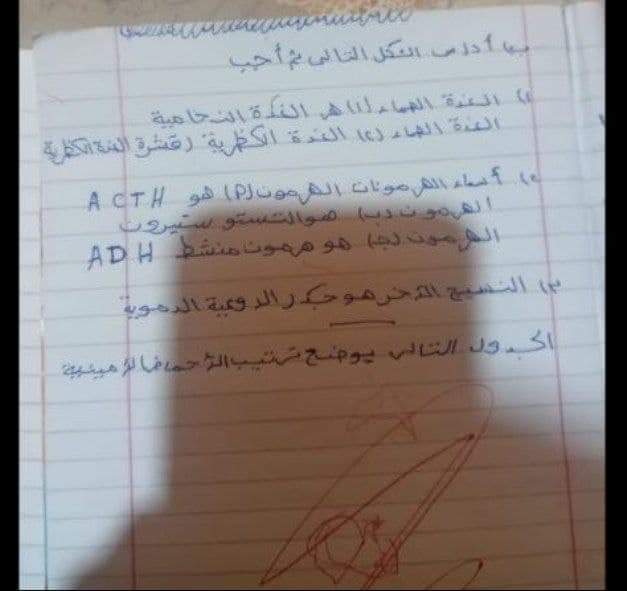 ب) أدرس الشكل التالى ثم أجب
١) الغدة الصماء (١) هى الغدة النخامية
الغدة الصماء (٢) الغدة الكظرية (قشرة الغدة الكظرية
٢) أسماء الهرمونات الهرمون (P) هو ACTH
الهرمون (ب) هو التستوستيرون
الهرمون (جـ) هو هرمون منشط ADH
٣) النسيج الآخر هو جدر الاوعية الدموية
الجدول التالى يوضح ترتيب الأحماض الأمينية